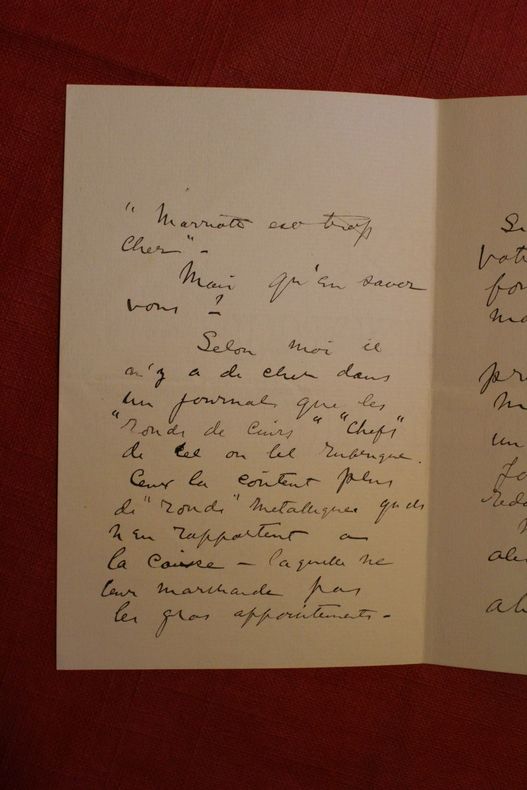 " Marriott est trop
cher" -
Mais qu'en savez
vous ?
Selon moi il
n'y a de cher dans
un journal que les
"ronds de cuirs" "Chefs"
de tel ou tel rubrique.
Ceux là coûtent plus
de "ronds" métalliques qu'ils
n'en rapportent a
la caisse - laquelle ne
leur marchande pas
les gros appointements -
un